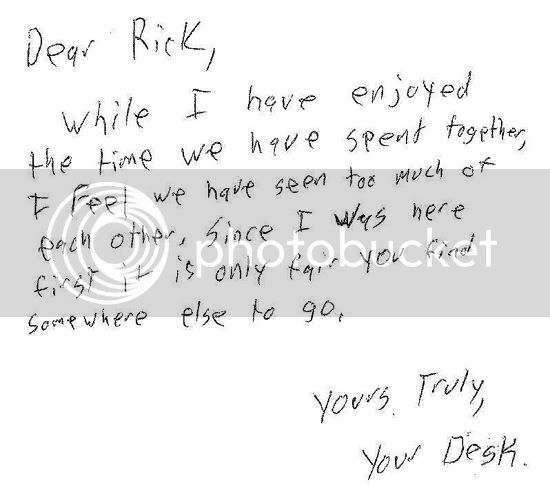 Dear Rick,
While I have enjoyed
the time we have spent together,
I feel we have seen too much of
each other, Since I was here
first it is only fair you find
somewhere else to go.
Yours Truly,
Your Desk.
photobucket